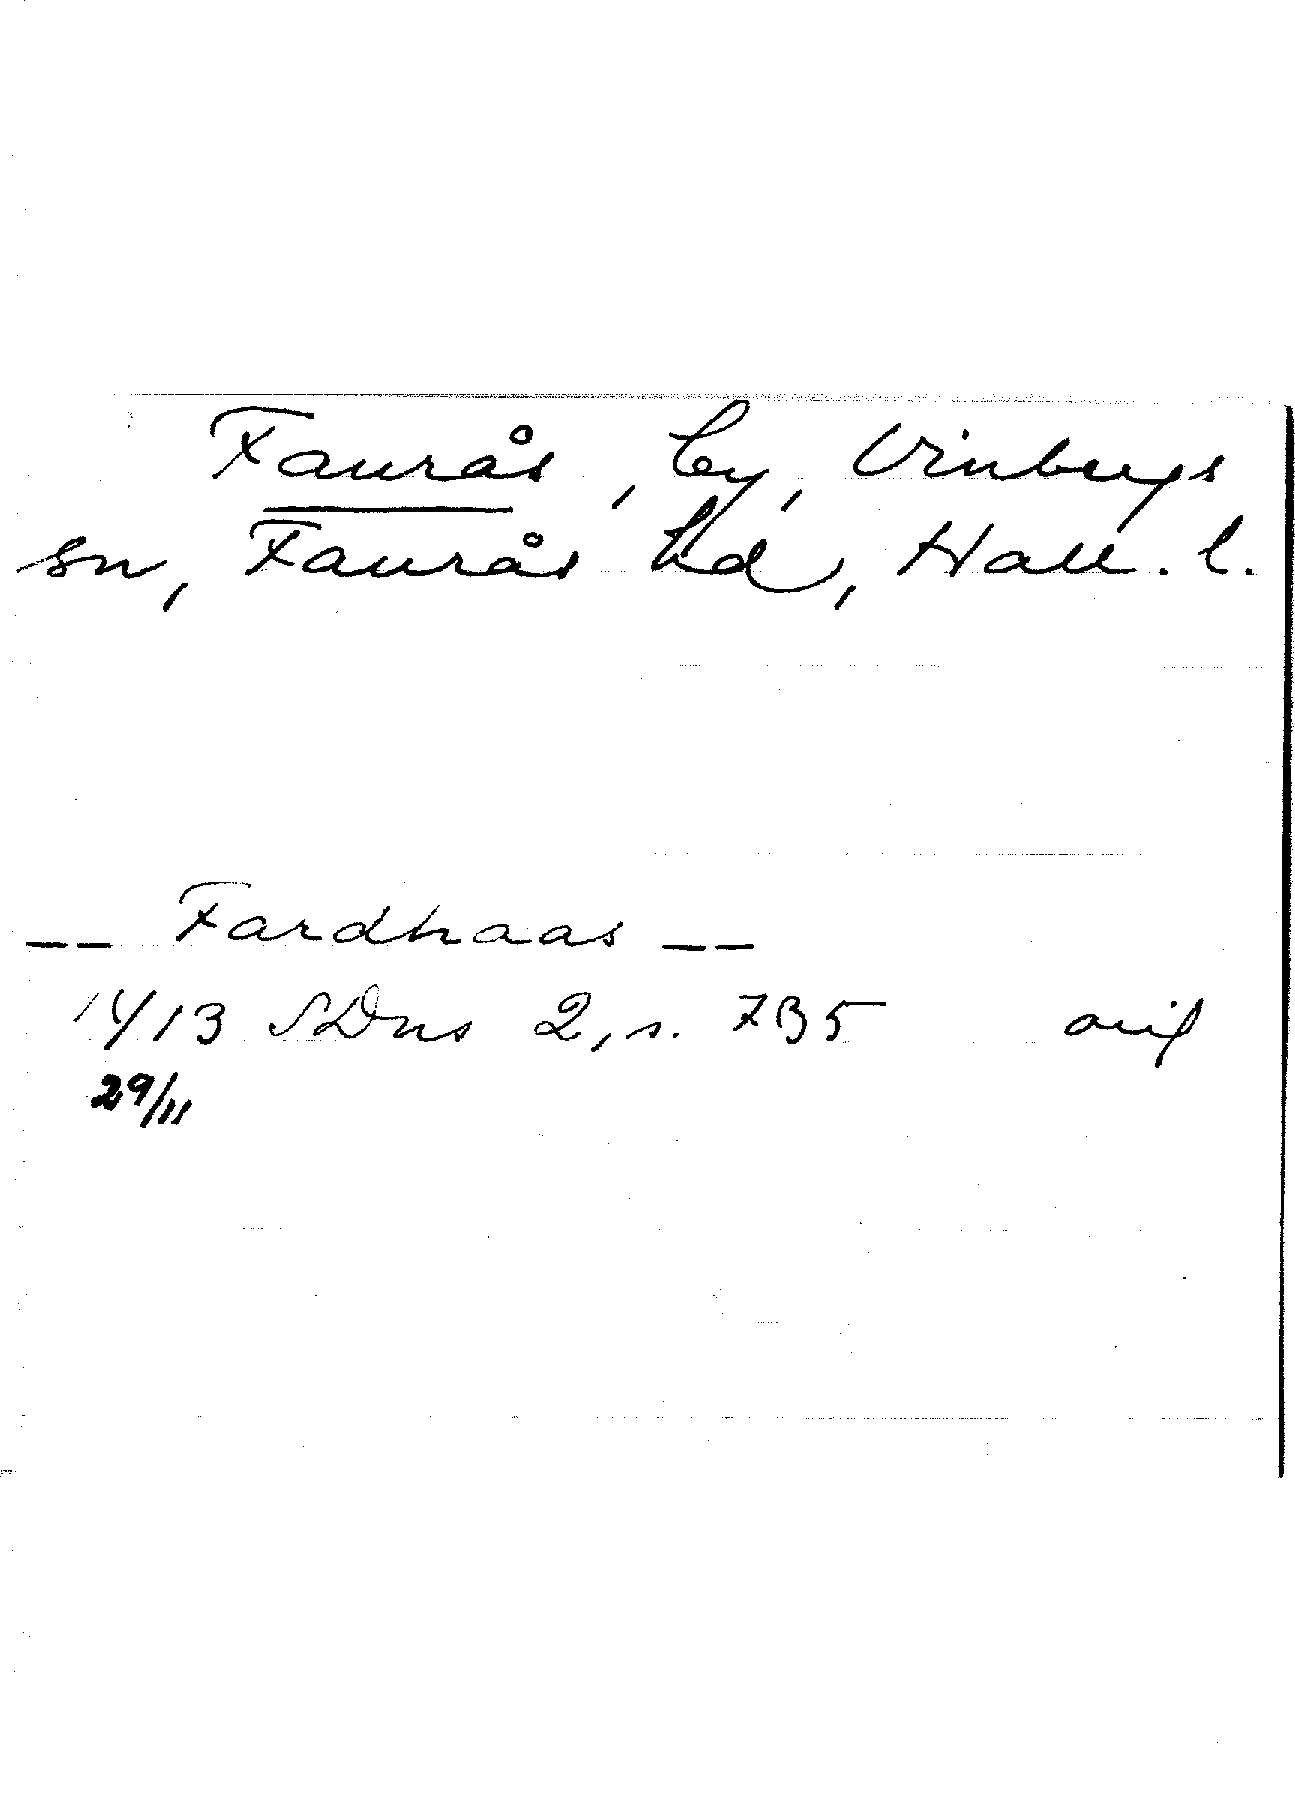 Faurås, by, Vinbergs
sn, Faurås hd, Hall. l.
-- Fardhaas --
1413 SDns 2, s. 735 avs
29/11